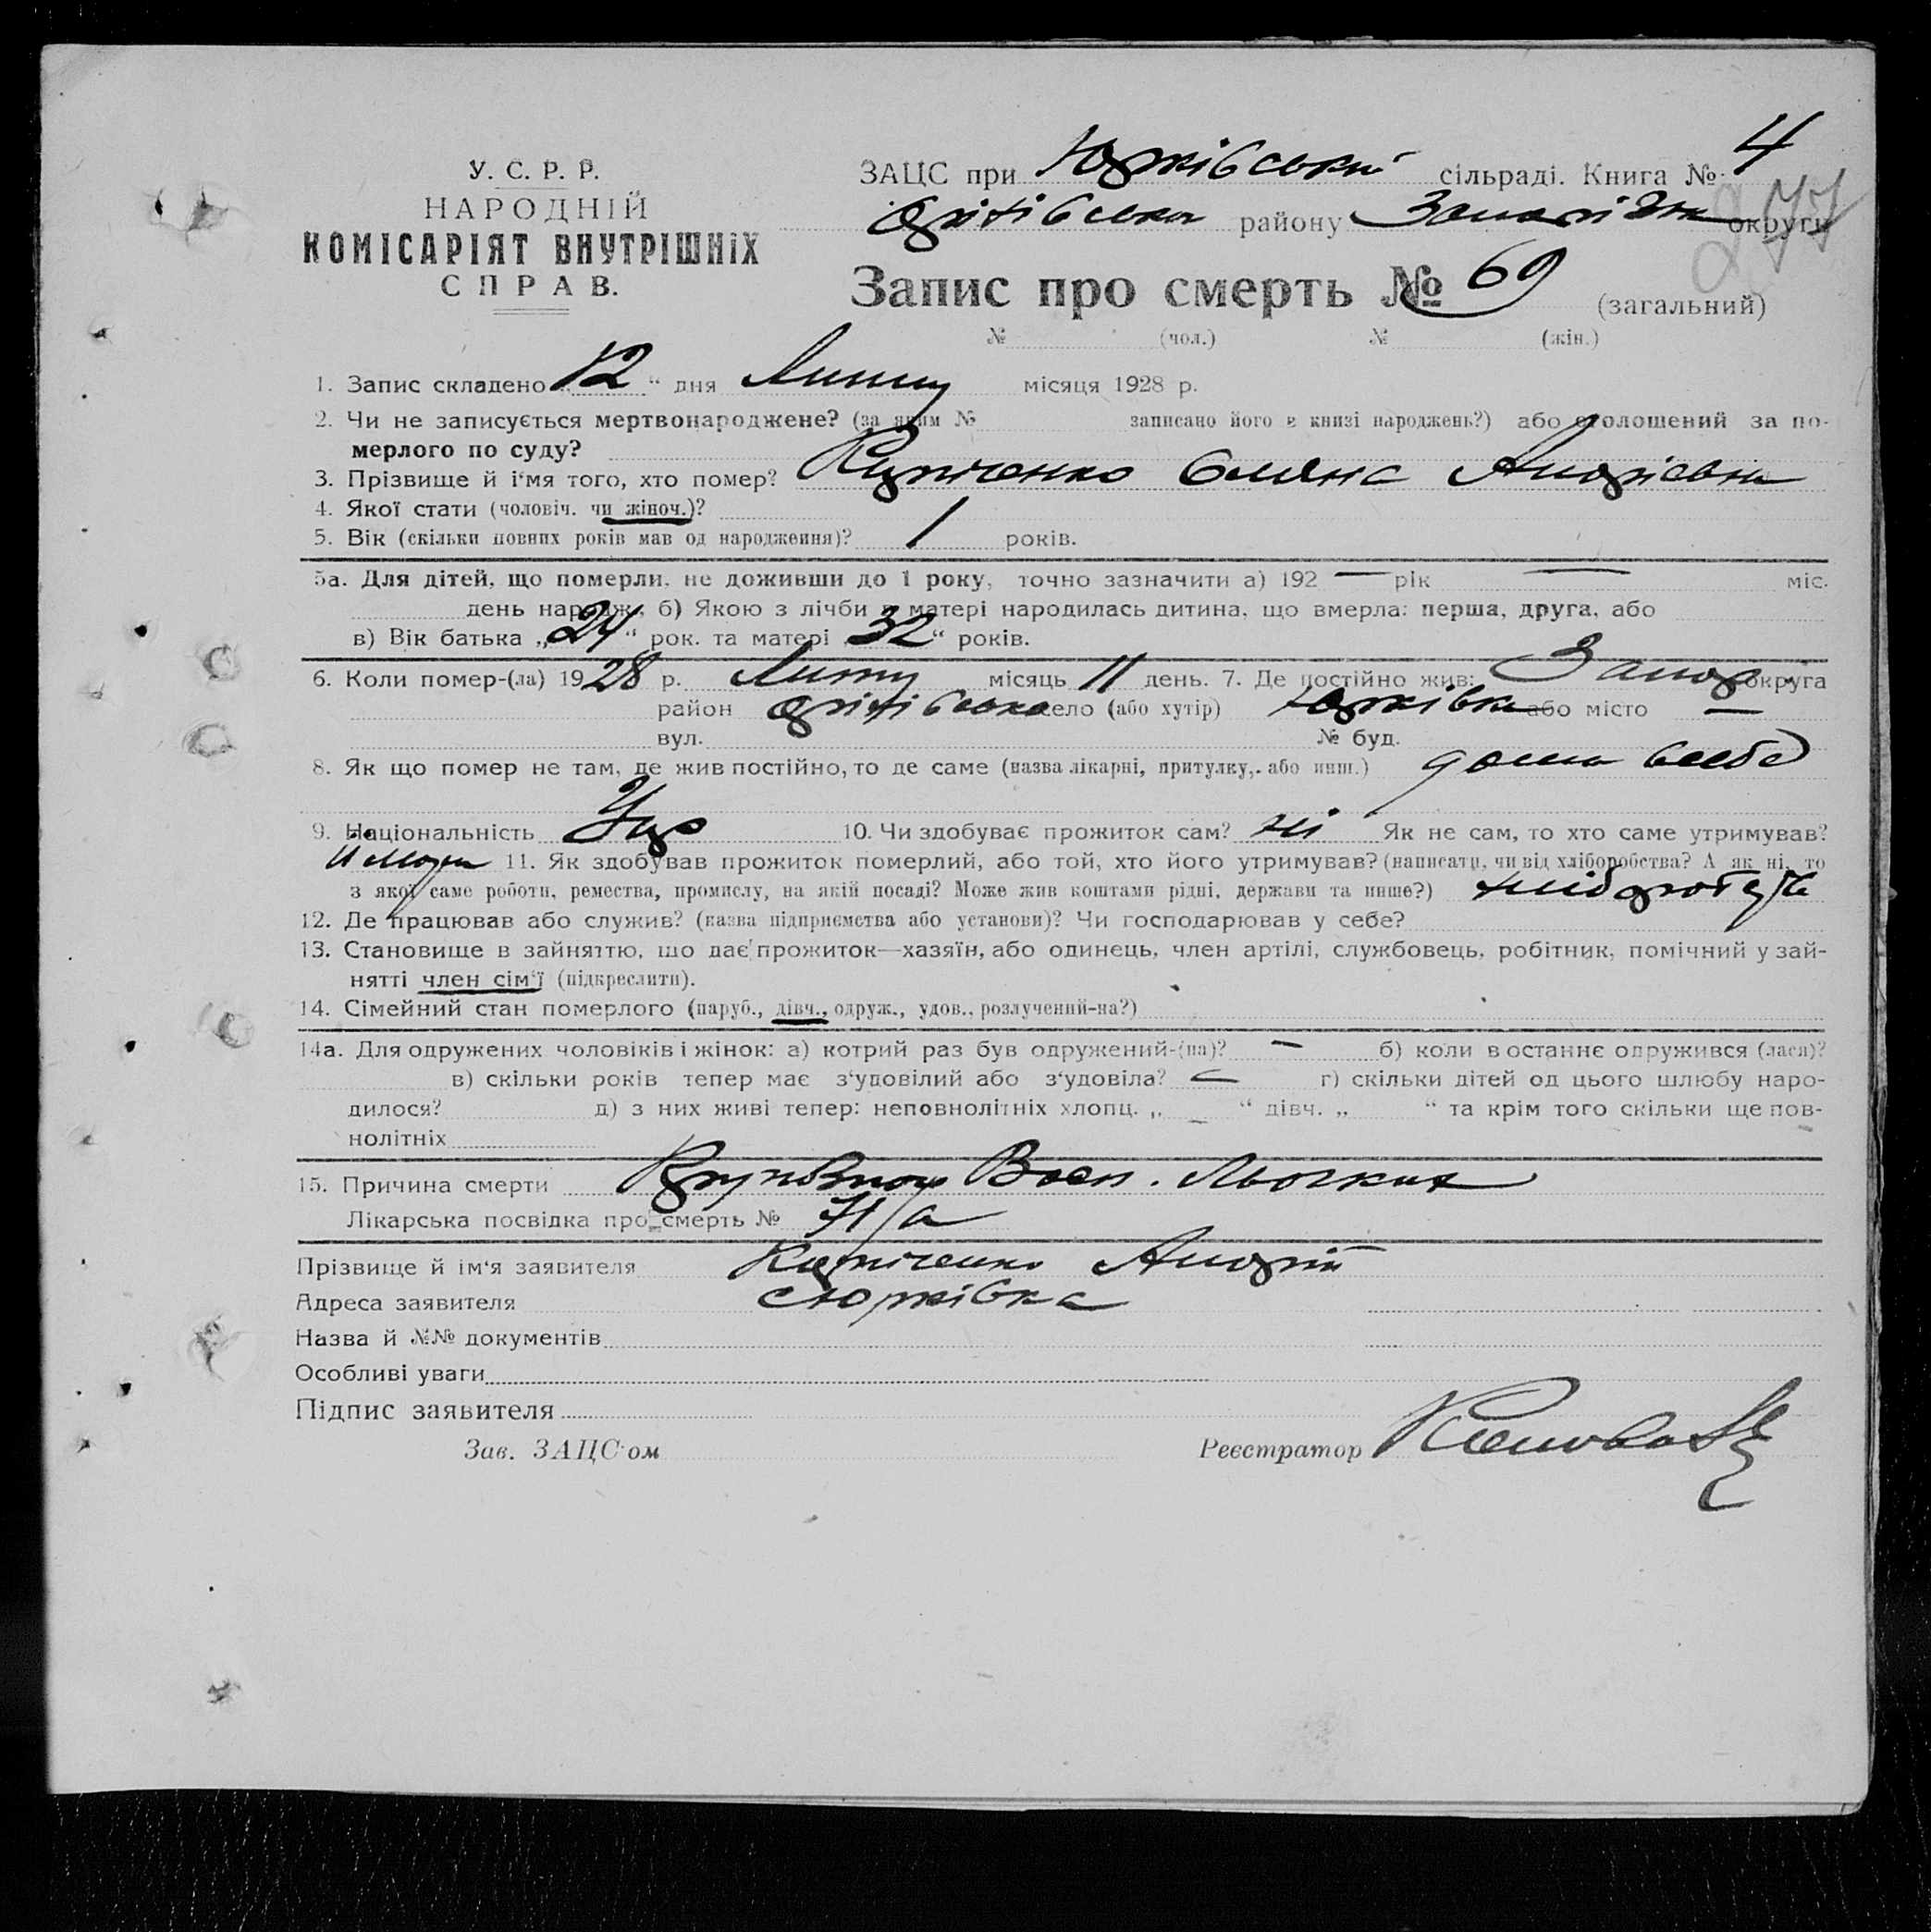 У. С. Р. Р.
НАРОДНІЙ
КОМІСАРІЯТ ВНУТРІШНІХ
СПРАВ.
ЗАЦС при Юрківській сільраді. Книга № 4
Оріхівська району Запоріжж округи
277
Запис про смерть № 69 (загальний)
№ (чол.) № (жін.)
1. Запис складено „12“ дня Липня місяця 1928 р.
2. Чи не записується мертвонароджене? (за яким № записано його в книзі народжень?) або оголошений за по-
мерлого по суду?
3. Прізвище й і'мя того, хто помер? Кириченко Андріевна
4. Якої стати (чоловіч. чи жіноч.)?
5. Вік (скільки повних років мав од народження)? 1 років.
5а. Для дітей, що померли, не доживши до 1 року, точно зазначити а) 192 — рік — міс.
день народж. б) Якою з лічби в матері народилась дитина, що вмерла: перша, друга, або
в) Вік батька „24“ рок. та матері „32“ років.
6. Коли помер-(ла) 1928 р. Липня місяць 11 день. 7. Де постійно жив: Запор. округа
район Оріхівська село (або хутір) Юрківка або місто —
вул. № буд.
8. Як що помер не там, де жив постійно, то де саме (назва лікарні, притулку, або инш.) дома в себе
9. Національність Укр 10. Чи здобуває прожиток сам? ні Як не сам, то хто саме утримував?
11. Як здобував прожиток померлий, або той, хто його утримував? (написати, чи від хліборобства? А як ні, то
з якої саме роботи, ремества, промислу, на якій посаді? Може жив коштами рідні, держави та инше?)
12. Де працював або служив? (назва підприємства або установи)? Чи господарював у себе?
13. Становище в зайняттю, що дає прожиток—хазяїн, або одинець, член артілі, службовець, робітник, помічний у зай-
нятті член сім'ї (підкреслити).
14. Сімейний стан померлого (паруб., дівч., одруж., удов., розлучений-на?)
14а. Для одружених чоловіків і жінок: а) котрий раз був одружений-(на)? — б) коли в останнє одружився (лася)?
в) скільки років тепер має з'удовілий або з'удовіла? — г) скільки дітей од цього шлюбу наро-
дилося? д) з них живі тепер: неповнолітніх хлопц. „ “ дівч. „ “ та крім того скільки ще пов-
нолітніх
15. Причина смерти Крупозное Восп. Легких
Лікарська посвідка про смерть № 71/а
Прізвище й ім'я заявителя Кириченко Андрій
Адреса заявителя с Юрківка
Назва й №№ документів
Особливі уваги
Підпис заявителя
Зав. ЗАЦС'ом Реєстратор